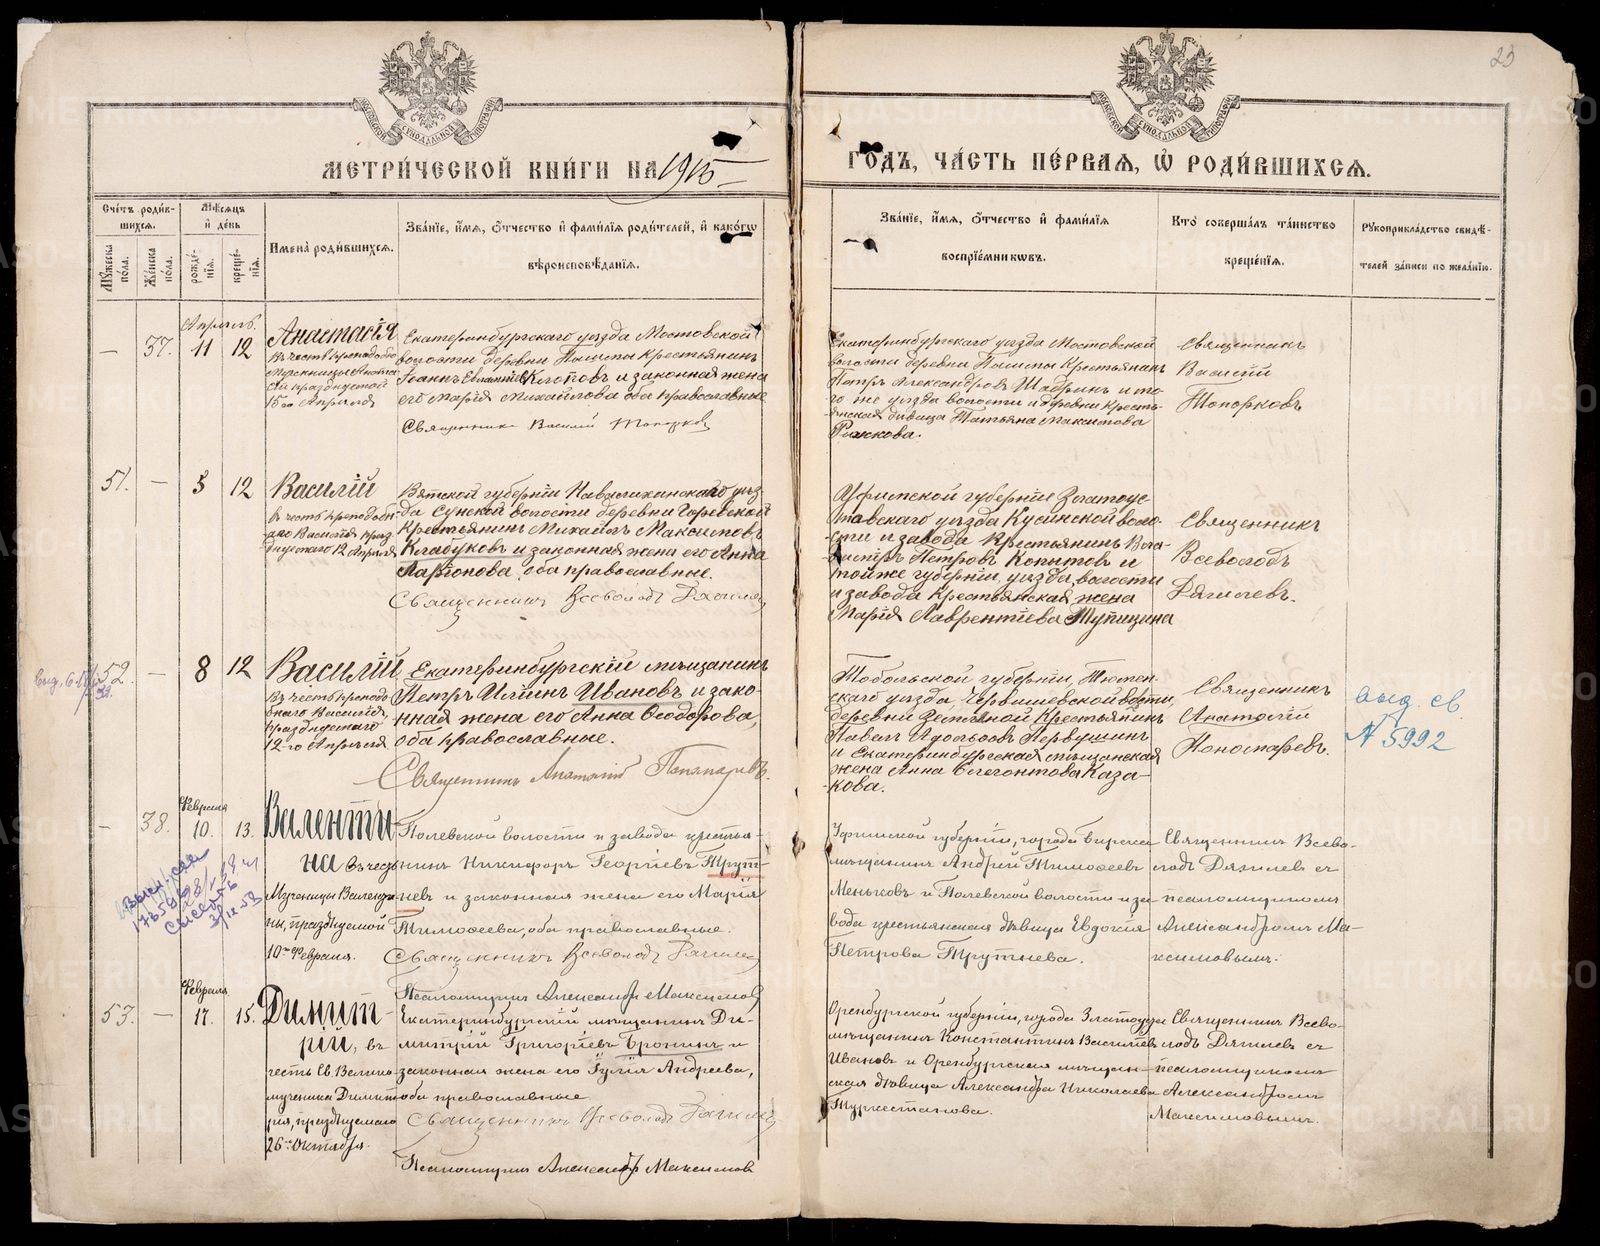 23
МЕТРИ́ЧЕСКОЙ КНИ́ГИ НА 1915
ГОДЪ, ЧА́СТЬ ПЕ́РВАЯ, Ѡ РОДИ́ВШИХСЯ.
Сче́тъ роди́в-
шихся.
Му́жеска по́ла.
Же́нска по́ла.
Мѣ́сяцъ
и де́нь
рожде́-
нїя.
креще́-
нїя.
Имена̀ роди́вшихся.
Зва́нїе, и́мя, о́тчество и фами́лїя роди́телей, и како́гѡ
вѣроисповѣ́данїя.
Зва́нїе, и́мя, о́тчество и фами́лїя
воспрїе́мникѡвъ.
Кто̀ соверша́лъ та́инство
креще́нїя.
Рукоприкла́дство свидѣ́-
телей за́писи по жела́нїю.
Апрѣль.
— 37. 11 12
Анастасія
15го Апрѣля
Екатеринбургскаго уѣзда Мостовской
волости деревни Пышмы крестьянинъ
Іоаннъ Клоповъ и законная жена
его Марія Михайлова оба православные
Священникъ Василій Топорковъ
Екатеринбургскаго уѣзда Мостовской
волости деревни Пышмы крестьянинъ
Петръ Александровъ Шадринъ и то-
го же уѣзда волости и деревни кресть-
янская дѣвица Татьяна Максимова
Рыжкова.
Священникъ
Василій
Топорковъ
51. — 5 12
Василій
въ честь преподоб-
наго Василія празд-
днуемаго 12 Апрѣля
Вятской губерніи уѣз-
да Сунской волости деревни
Крестьянинъ Михаилъ Максимовъ
Клабуковъ и законная жена его Анна
Ларіонова, оба православные.
Священникъ Всеволодъ
Уфимской губерніи Златоус-
товскаго уѣзда Кусинской воло-
сти и завода Крестьянинъ
Петровъ Копытовъ и
той же губерніи, уѣзда, волости
и завода крестьянская жена
Марія Лаврентіева Тупицина
Священникъ
Всеволодъ
Дягилевъ.
52. — 8 12
Василій
въ честь преподо-
бнаго Василія,
празднуемаго
12-го Апрѣля
Екатеринбургскій мѣщанинъ
Петръ Илiинъ Ивановъ и зако-
нная жена его Анна Ѳеодорова,
оба православные.
Священникъ Анатолій Пономаревъ.
Тобольской губерніи, Тюмен-
скаго уѣзда, Червишевской волости,
деревни Крестьянинъ
Павелъ Первушинъ
и Екатеринбургская мѣщанская
жена Анна Каза-
кова.
Священникъ
Анатолій
Пономаревъ.
выд. св.
№ 5992
Февраля
— 38. 10. 13.
Валенти-
на въ честь
Мученицы Валенти-
ны, празднуемой
10го Февраля.
Полевской волости и завода крестья-
нинъ Никифоръ Георгіевъ Трут-
невъ и законная жена его Марія
Тимоѳеева, оба православные.
Священникъ Всеволодъ
Псаломщикъ Александръ Максимовъ
Уфимской губерніи, города Бирска
мѣщанинъ Андрей Тимоѳеевъ
Меньковъ и Полевской волости и за-
вода крестьянская дѣвица Евдокія
Петрова Трутнева.
Священникъ Всево-
лодъ Дягилевъ съ
псаломщикомъ
Александромъ Ма-
ксимовымъ.
Февраля
53. — 17. 15.
Димит-
рій, въ
честь Св. Велико-
мученика Димит-
рія, празднуемаго
26го Октября.
Екатеринбургскій мѣщанинъ Ди-
митрій Григоріевъ Бронинъ и
законная жена его Іулія Андреева,
оба православные
Священникъ Всеволодъ
Псаломщикъ Александръ Максимовъ
Оренбургской губерніи, города Златоуста
мѣщанинъ Константинъ Васильевъ
Ивановъ и Оренбургская мѣщан-
ская дѣвица Александра Николаева
Туркестанова.
Священникъ Всево-
лодъ Дягилевъ съ
псаломщикомъ
Александромъ
Максимовымъ.